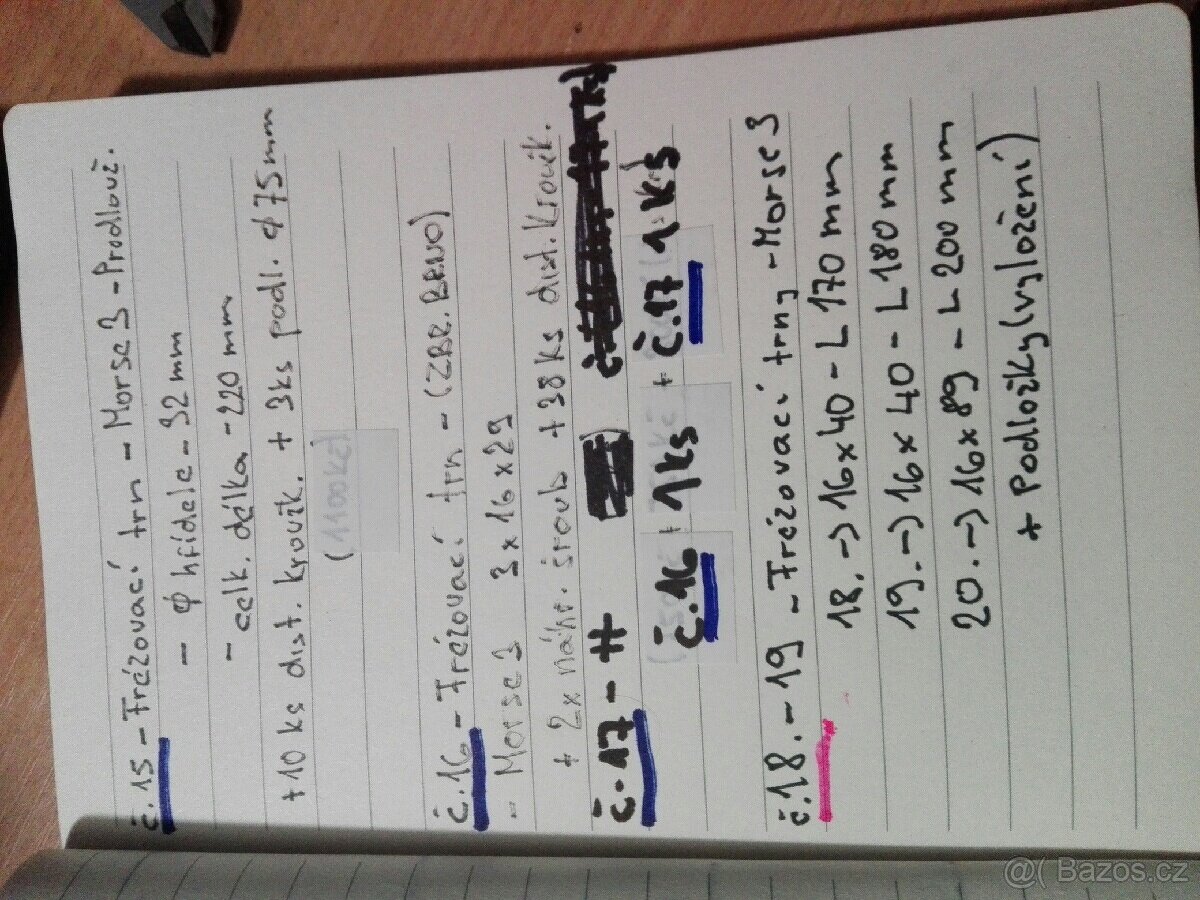 č.15 - Frézovací trn - Morse 3 - Prodlouž.
- φ hřídele - 32 mm
- celk. délka - 220 mm
+ 10 ks dist. kroužk. + 3ks podl. φ 75 mm
(1100kč)
č.16 - Frézovací trn - (ZBR. BRNO)
- Morse 3 3 x 16 x 29
+ 2x náhr. šroub + 38 ks dist. kroužk.
č. 17 - #
č.16 1ks + č.17 1ks
č.18. - 19 - Frézovací trny - Morse 3
18. -> 16 x 40 - L 170 mm
19. -> 16 x 40 - L 180 mm
20. -> 16 x 89 - L 200 mm
+ Podložky (vyložení)
@( Bazos.cz